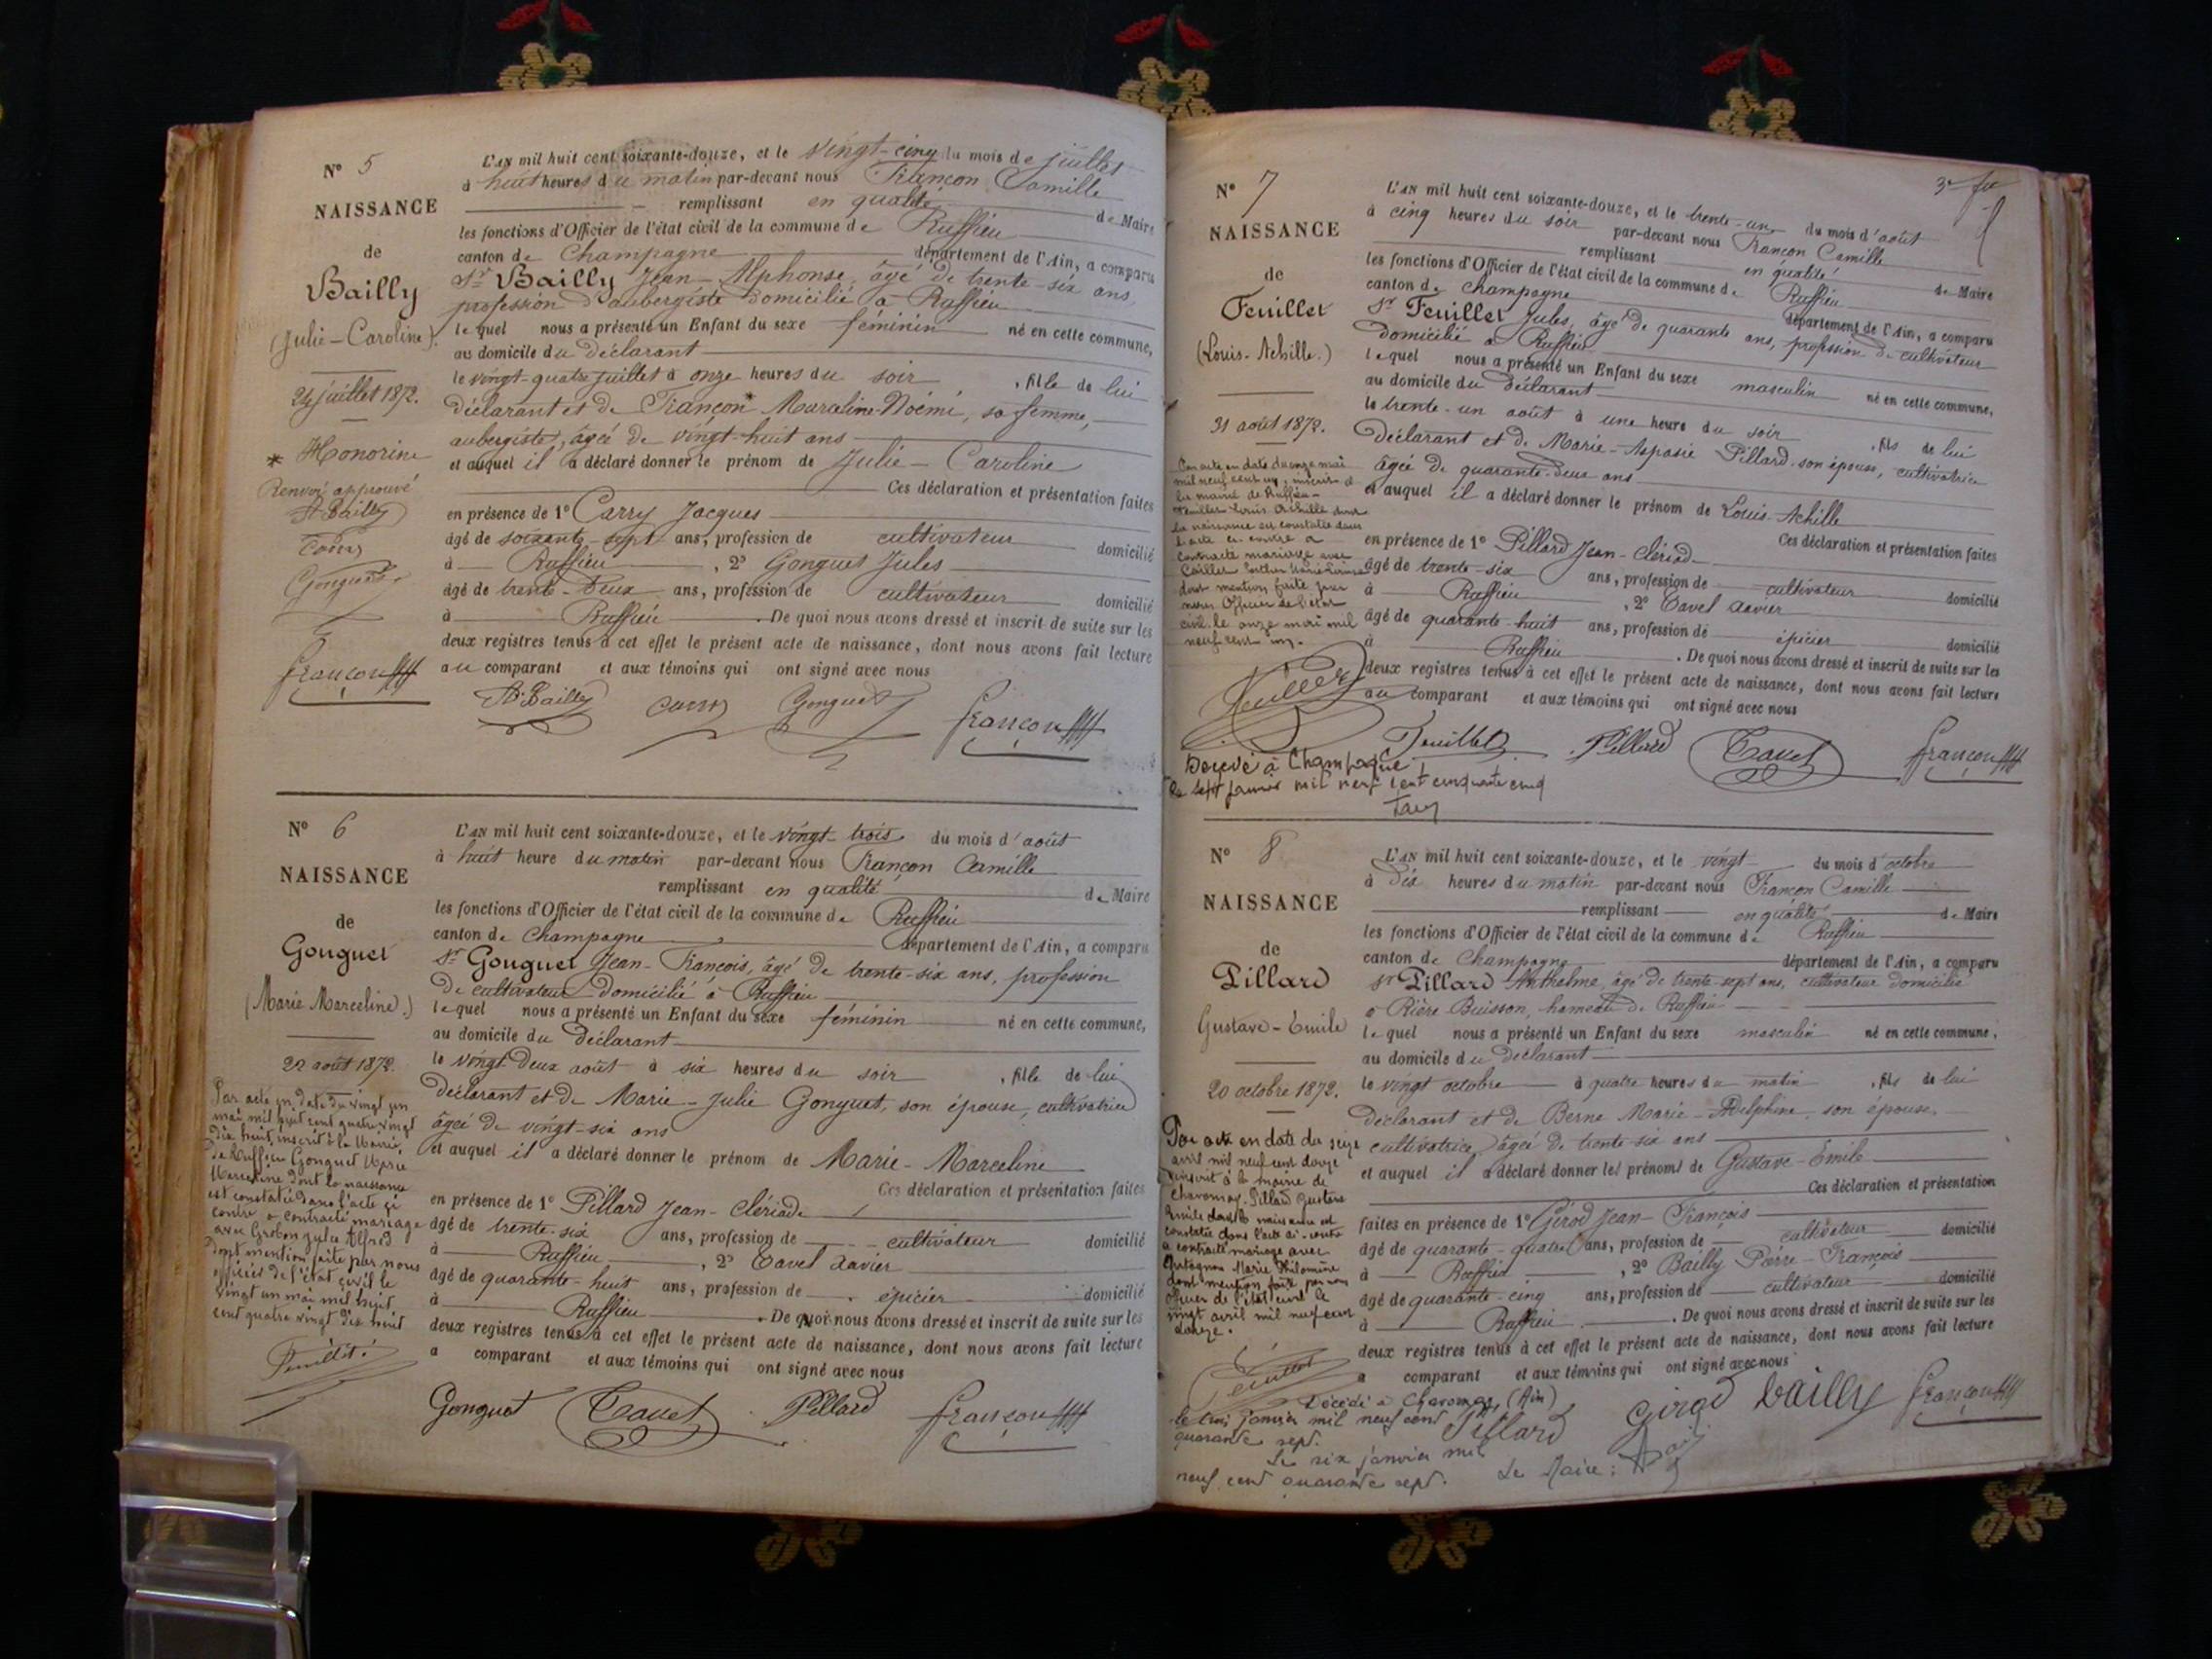 N° 5
NAISSANCE
de
Bailly
(Julie-Caroline).
24 juillet 1872.
* Honorine
Renvoi approuvé
Bailly
Gonguet
françon
L'AN mil huit cent soixante-douze, et le vingt-cinq du mois de juillet
à huit heures du matin par-devant nous Françon Camille
remplissant en qualité de Maire
les fonctions d'Officier de l'état civil de la commune de Ruffieu
canton de Champagne département de l'Ain, a comparu
Sr Bailly Jean-Alphonse, âgé de trente-six ans,
profession d'aubergiste domicilié à Ruffieu
lequel nous a présenté un Enfant du sexe féminin né en cette commune,
au domicile du Déclarant
le vingt-quatre juillet à onze heures du soir, fille de lui
déclarant et de Françon* Marceline-Noémi, sa femme,
aubergiste, âgée de vingt-huit ans
et auquel il a déclaré donner le prénom de Julie-Caroline
Ces déclaration et présentation faites
en présence de 1° Carry Jacques
âgé de soixante-sept ans, profession de cultivateur domicilié
à Ruffieu, 2° Gonguet Jules
âgé de trente-deux ans, profession de cultivateur domicilié
à Ruffieu. De quoi nous avons dressé et inscrit de suite sur les
deux registres tenus à cet effet le présent acte de naissance, dont nous avons fait lecture
au comparant et aux témoins qui ont signé avec nous
Bailly Carry Gonguet françon
N° 6
NAISSANCE
de
Gonguet
(Marie Marceline.)
22 août 1872.
Par acte en date du vingt un
mai mil huit cent quatre vingt
dix huit, inscrit à la Mairie
de Ruffieu Gonguet Marie
Marceline dont la naissance
est constatée dans l'acte ci
contre a contracté mariage
avec Grobon Jules Alfred
Dont mention faite par nous
officier de l'état civil le
vingt un mai mil huit
cent quatre vingt dix huit
Feuillet
L'AN mil huit cent soixante-douze, et le vingt-trois du mois d'août
à huit heure du matin par-devant nous Françon Camille
remplissant en qualité de Maire
les fonctions d'Officier de l'état civil de la commune de Ruffieu
canton de Champagne département de l'Ain, a comparu
Sr Gonguet Jean-François, âgé de trente-six ans, profession
de cultivateur domicilié à Ruffieu
lequel nous a présenté un Enfant du sexe féminin né en cette commune,
au domicile du Déclarant
le vingt-deux août à six heures du soir, fille de lui
Déclarant et de Marie-Julie Gonguet, son épouse, cultivatrice
âgée de vingt-six ans
et auquel il a déclaré donner le prénom de Marie-Marceline
Ces déclaration et présentation faites
en présence de 1° Pillard Jean-Clériade
âgé de trente-six ans, profession de cultivateur domicilié
à Ruffieu, 2° Tavel Xavier
âgé de quarante-huit ans, profession de épicier domicilié
à Ruffieu. De quoi nous avons dressé et inscrit de suite sur les
deux registres tenus à cet effet le présent acte de naissance, dont nous avons fait lecture
a comparant et aux témoins qui ont signé avec nous
Gonguet Tavel Pillard françon
N° 7
NAISSANCE
de
Feuillet
(Louis-Achille.)
31 août 1872.
Par acte en date du onze mai
mil neuf cent un, inscrit à
la mairie de Ruffieu
Feuillet Louis Achille dont
la naissance est constatée dans
l'acte ci contre a
contracté mariage avec
dont mention faite par
nous Officier de l'état
civil le onze mai mil
neuf cent un.
3e fte
L'AN mil huit cent soixante-douze, et le trente-un du mois d'août
à cinq heures du soir par-devant nous Françon Camille
remplissant en qualité de Maire
les fonctions d'Officier de l'état civil de la commune de Ruffieu
canton de Champagne département de l'Ain, a comparu
Sr Feuillet Jules, âgé de quarante ans, profession de cultivateur
domicilié à Ruffieu
lequel nous a présenté un Enfant du sexe masculin né en cette commune,
au domicile du Déclarant
le trente-un août à une heure du soir, fils de lui
Déclarant et de Marie-Aspasie Pillard son épouse, cultivatrice
âgée de quarante-deux ans
et auquel il a déclaré donner le prénom de Louis-Achille
Ces déclaration et présentation faites
en présence de 1° Pillard Jean-Clériad
âgé de trente-six ans, profession de cultivateur domicilié
à Ruffieu, 2° Tavel Xavier
âgé de quarante-huit ans, profession de épicier domicilié
à Ruffieu. De quoi nous avons dressé et inscrit de suite sur les
deux registres tenus à cet effet le présent acte de naissance, dont nous avons fait lecture
au comparant et aux témoins qui ont signé avec nous
Feuillet Pillard Tavel françon
Décédé à Champagne
le sept janvier mil neuf cent cinquante cinq
N° 8
NAISSANCE
de
Pillard
Gustave-Emile
20 octobre 1872.
Par acte en date du seize
avril mil neuf cent douze
inscrit à la mairie de
Chavornay. Pillard Gustave
Emile dont la naissance est
constatée dans l'acte ci-contre
a contracté mariage avec
Marie Philomène
dont mention faite par nous
officier de l'état civil le
vingt avril mil neuf cent
douze.
Feuillet
L'AN mil huit cent soixante-douze, et le vingt du mois d'octobre
à dix heures du matin par-devant nous Françon Camille
remplissant en qualité de Maire
les fonctions d'Officier de l'état civil de la commune de Ruffieu
canton de Champagne département de l'Ain, a comparu
Sr Pillard Anthelme, âgé de trente-sept ans, cultivateur domicilié
à Rière Buisson, hameau de Ruffieu
lequel nous a présenté un Enfant du sexe masculin né en cette commune,
au domicile du Déclarant
le vingt octobre à quatre heures du matin, fils de lui
déclarant et de Berne Marie-Adelphine son épouse,
cultivatrice âgée de trente-six ans
et auquel il a déclaré donner les prénoms de Gustave-Emile
Ces déclaration et présentation
faites en présence de 1° Girod Jean-François
âgé de quarante-quatre ans, profession de cultivateur domicilié
à Ruffieu, 2° Bailly Pierre-François
âgé de quarante-cinq ans, profession de cultivateur domicilié
à Ruffieu. De quoi nous avons dressé et inscrit de suite sur les
deux registres tenus à cet effet le présent acte de naissance, dont nous avons fait lecture
a comparant et aux témoins qui ont signé avec nous
Pillard Girod Bailly françon
Décédé à Chavornay (Ain)
le trois janvier mil neuf cent
quarante sept.
Le six janvier mil
neuf cent quarante sept. Le Maire: